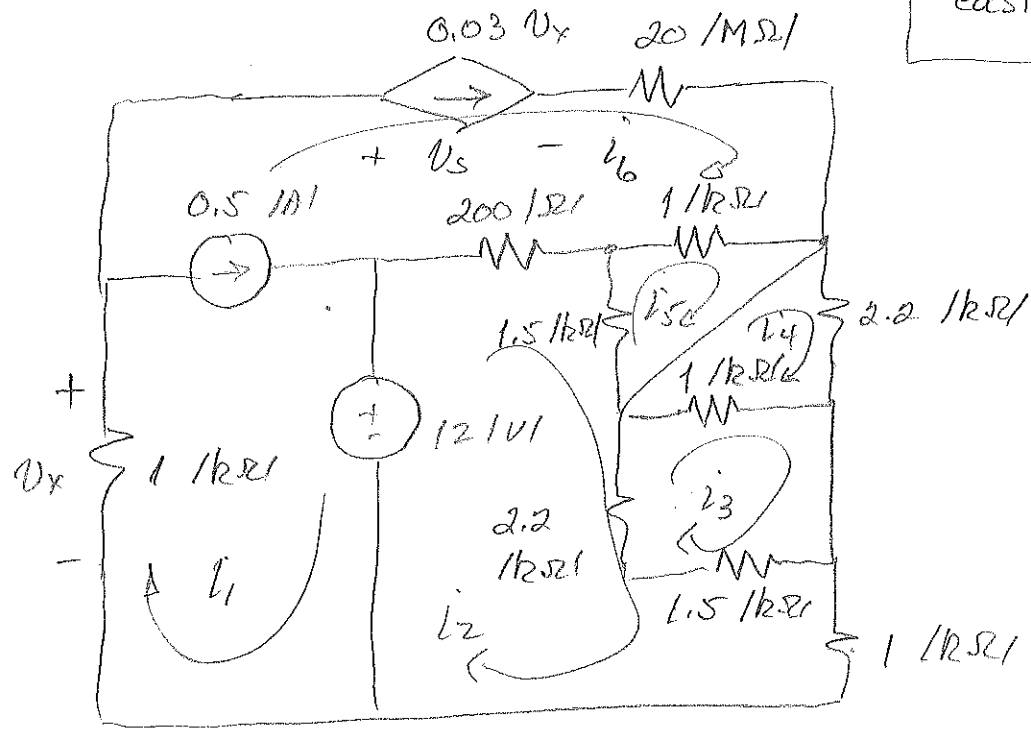 eas
0.03 Vx 20 /MΩ/
+ Vs - i6
0.5 /A/ 200 /Ω/ 1 /kΩ/
1.5 /kΩ/ i5 i4 2.2 /kΩ/
1 /kΩ/
+ + - 12 /V/
Vx 1 /kΩ/
- i1 2.2 /kΩ/ i3
i2 1.5 /kΩ/ 1 /kΩ/